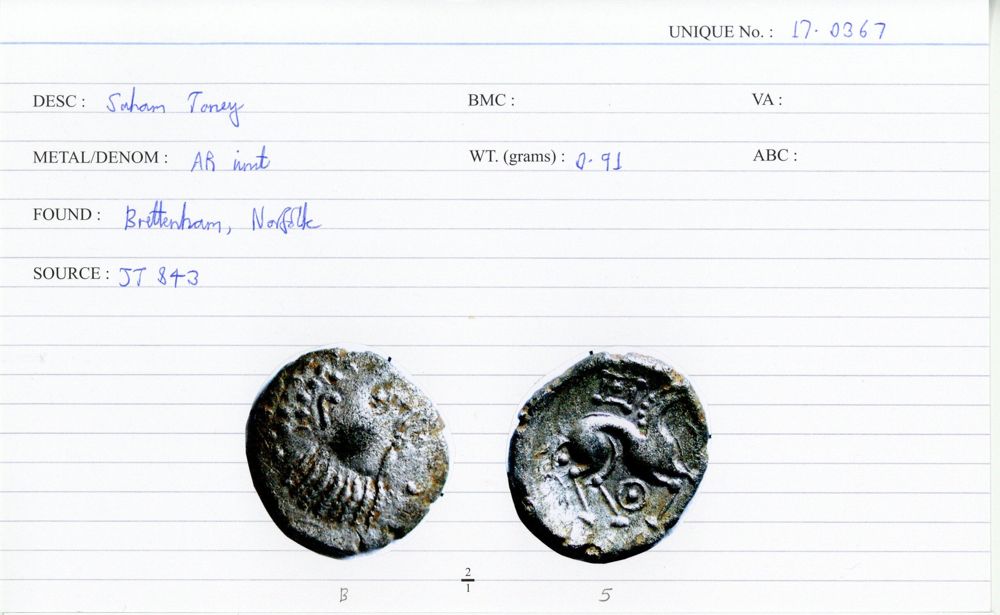 UNIQUE No. : 17. 0367
DESC : Saham Toney BMC : VA :
METAL/DENOM : AR unit WT. (grams) : 0.91 ABC :
FOUND : Brettenham, Norfolk
SOURCE : JT 843
2
1
B 5